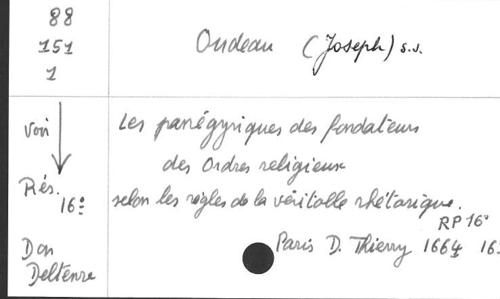 88
151
1
Oudeau (Joseph) s.j.
Voir
Rés.
16º
Don
Deltenre
Les panégyriques des fondateurs
des Ordres religieux
selon les règles de la véritable rhétorique.
RP 16º
Paris D. Thierry 1664 16.